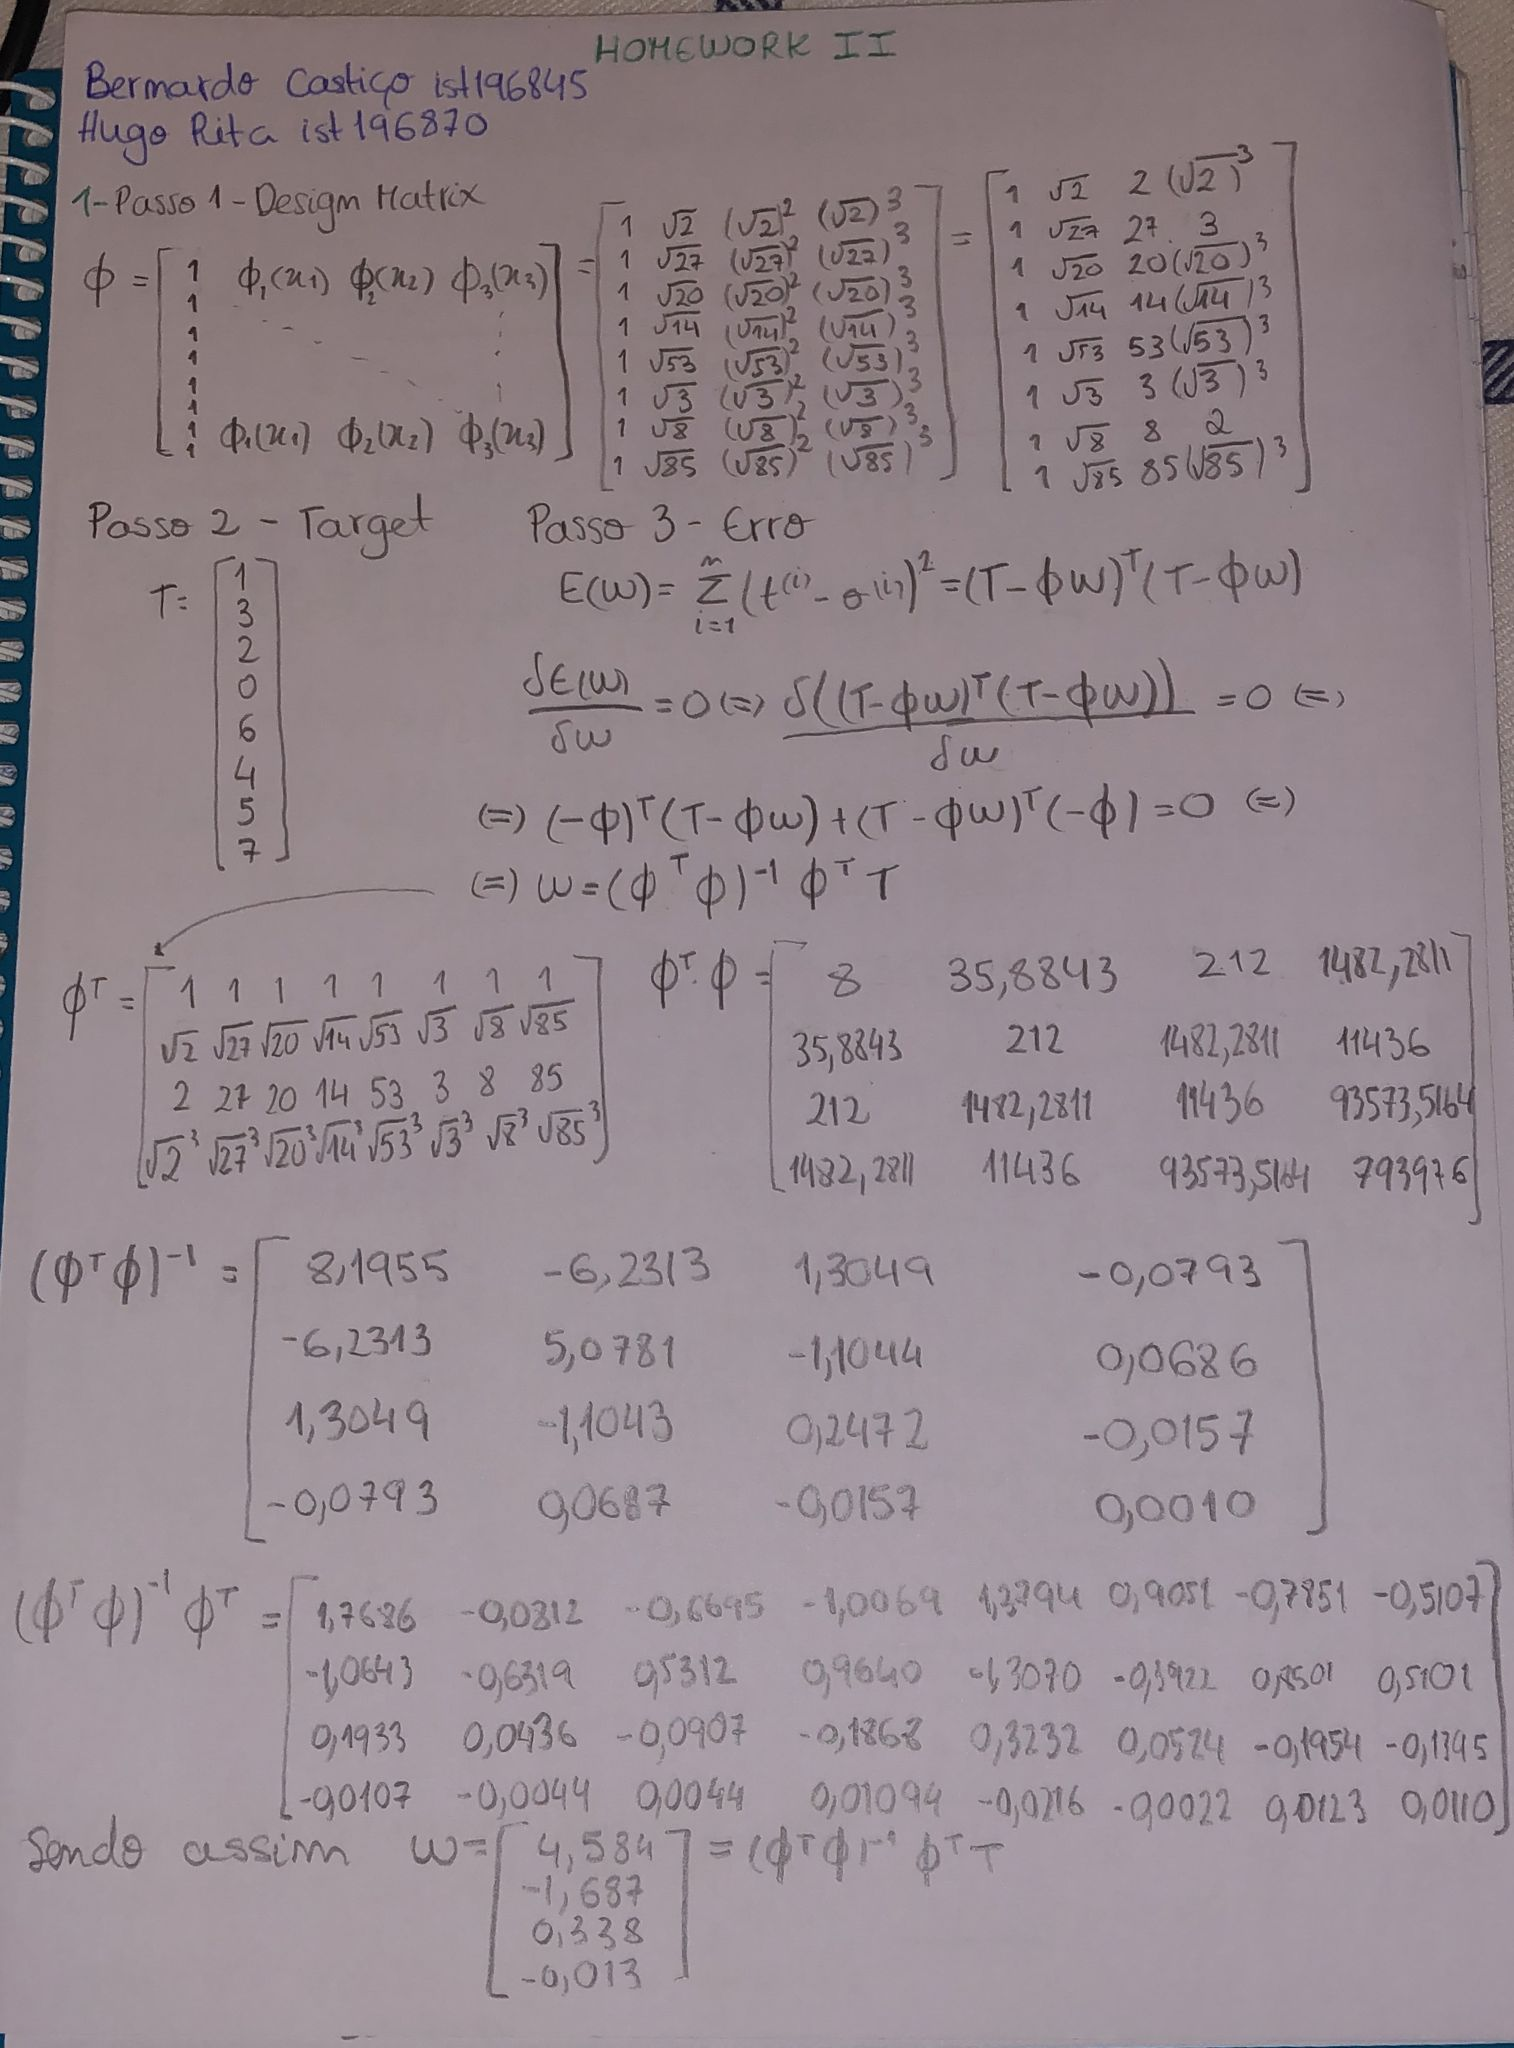 HOMEWORK II
Bernardo Castiço ist196845
Hugo Rita ist196870
1-Passo 1 - Design Matrix
ϕ = [ 1 ϕ₁(x₁) ϕ₂(x₂) ϕ₃(x₃)
1
1
1
1
1
1
1 ϕ₁(x₁) ϕ₂(x₂) ϕ₃(x₃) ]
= [ 1 √2 (√2)² (√2)³
1 √27 (√27)² (√27)³
1 √20 (√20)² (√20)³
1 √14 (√14)² (√14)³
1 √53 (√53)² (√53)³
1 √3 (√3)² (√3)³
1 √8 (√8)² (√8)³
1 √85 (√85)² (√85)³ ]
= [ 1 √2 2 (√2)³
1 √27 27 3
1 √20 20 (√20)³
1 √14 14 (√14)³
1 √53 53 (√53)³
1 √3 3 (√3)³
1 √8 8 2
1 √85 85 (√85)³ ]
Passo 2 - Target
T= [ 1
3
2
0
6
4
5
7 ]
Passo 3 - Erro
E(w) = Σ_{i=1}^{n} (t⁽ⁱ⁾ - o⁽ⁱ⁾)² = (T - ϕw)ᵀ(T - ϕw)
δE(w)/δw = 0 (=) δ((T-ϕw)ᵀ(T-ϕw))/δw = 0 (=)
(=) (-ϕ)ᵀ(T-ϕw) + (T-ϕw)ᵀ(-ϕ) = 0 (=)
(=) w = (ϕᵀϕ)⁻¹ ϕᵀ T
ϕᵀ = [ 1 1 1 1 1 1 1 1
√2 √27 √20 √14 √53 √3 √8 √85
2 27 20 14 53 3 8 85
√2³ √27³ √20³ √14³ √53³ √3³ √8³ √85³ ]
ϕᵀ.ϕ = [ 8 35,8843 212 1482,2811
35,8843 212 1482,2811 11436
212 1482,2811 11436 93573,5164
1482,2811 11436 93573,5164 793976 ]
(ϕᵀϕ)⁻¹ = [ 8,1955 -6,2313 1,3049 -0,0793
-6,2313 5,0781 -1,1044 0,0686
1,3049 -1,1043 0,2472 -0,0157
-0,0793 0,0687 -0,0157 0,0010 ]
(ϕᵀϕ)⁻¹ ϕᵀ = [ 1,7686 -0,0312 -0,6695 -1,0069 0,9051 -0,7851 -0,5107
-1,0643 -0,6319 0,5312 0,9640 -1,3070 -0,3922 0,8501 0,5101
0,1933 0,0436 -0,0907 -0,1868 0,3232 0,0524 -0,1954 -0,1395
-0,0107 -0,0044 0,0044 0,01094 -0,0216 -0,0022 0,0123 0,0110 ]
Sendo assim w = [ 4,584
-1,687
0,338
-0,013 ] = (ϕᵀϕ)⁻¹ ϕᵀ T